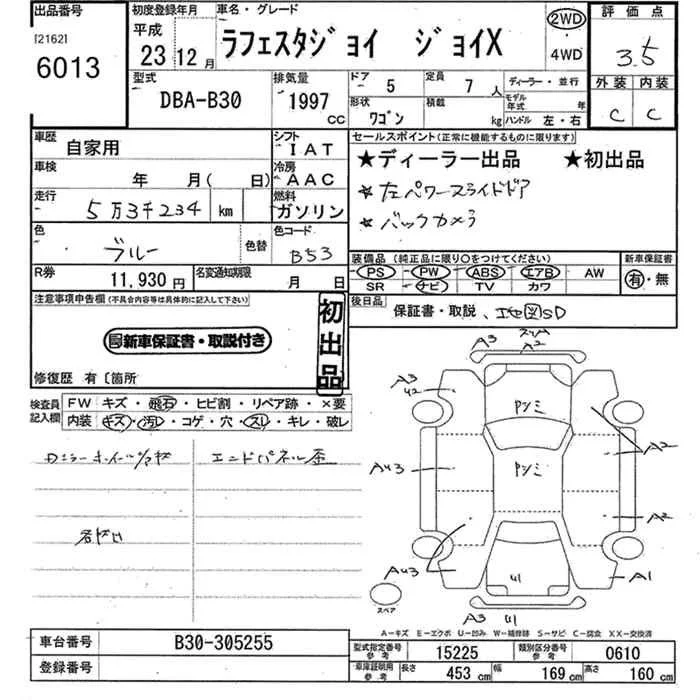 出品番号
[2162]
6013
初度登録年月
平成
23 12 月
車名・グレード
ラフェスタジョイ ジョイX
2WD
4WD
評 価 点
3.5
外装 内装
C C
型式
DBA-B30
排気量
1997 CC
ドア 5
定員 7 人
形状 ワゴン
積載 kg
ディーラー・並行
モデル年式 年
ハンドル 左・右
車歴 自家用
シフト IAT
車検 年 月( 日)
冷房 AAC
走行 5万3千234 km
燃料 ガソリン
色 ブルー 色替
色コード B53
R券 11,930 円
名変通知期限 月 日
セールスポイント(正常に機能するものに限ります)
★ディーラー出品 ★初出品
★左パワースライドドア
★バックカメラ
装備品 (純正品に限り○をつけてください)
PS PW ABS エアB AW
SR ナビ TV カワ
新車保証書
有・無
後日品 保証書・取説、 SD
注意事項申告欄(不具合内容等は具体的に記入して下さい)
新車保証書・取説付き
初出品
修復歴 有〔箇所
検査員記入欄
FW キズ・飛石・ヒビ割・リペア跡・×要
内装 キズ・汚レ・コゲ・穴・スレ・キレ・破レ
エンドパネル歪
A3 A2
A3
U2
Pシミ
Pシミ
A2
AU3
A2
AU3
A1
U1
A3 U1
スペア
A-キズ E-エクボ U-凹み W-補修跡 S-サビ C-腐食 XX-交換済
車台番号 B30-305255
登録番号
型式指定番号 参考 15225
類別区分番号 参考 0610
車庫証明用 参考 長さ 453 cm 幅 169 cm 高さ 160 cm